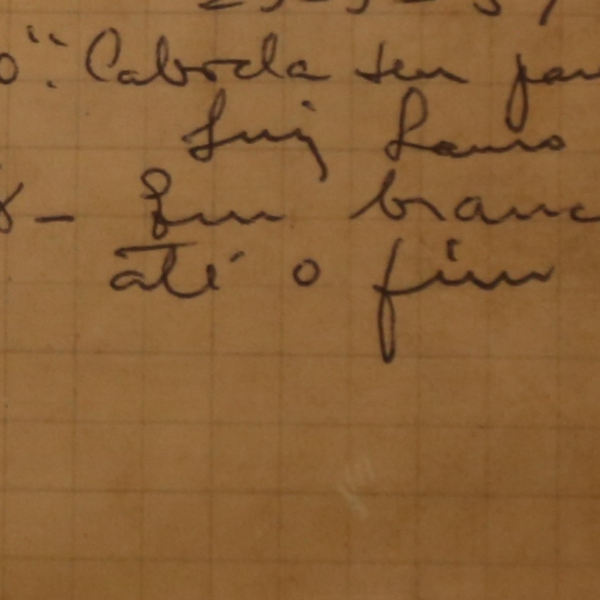 o": Cabocla sem
Luiz Lauro
8 - Em branc
até o fim